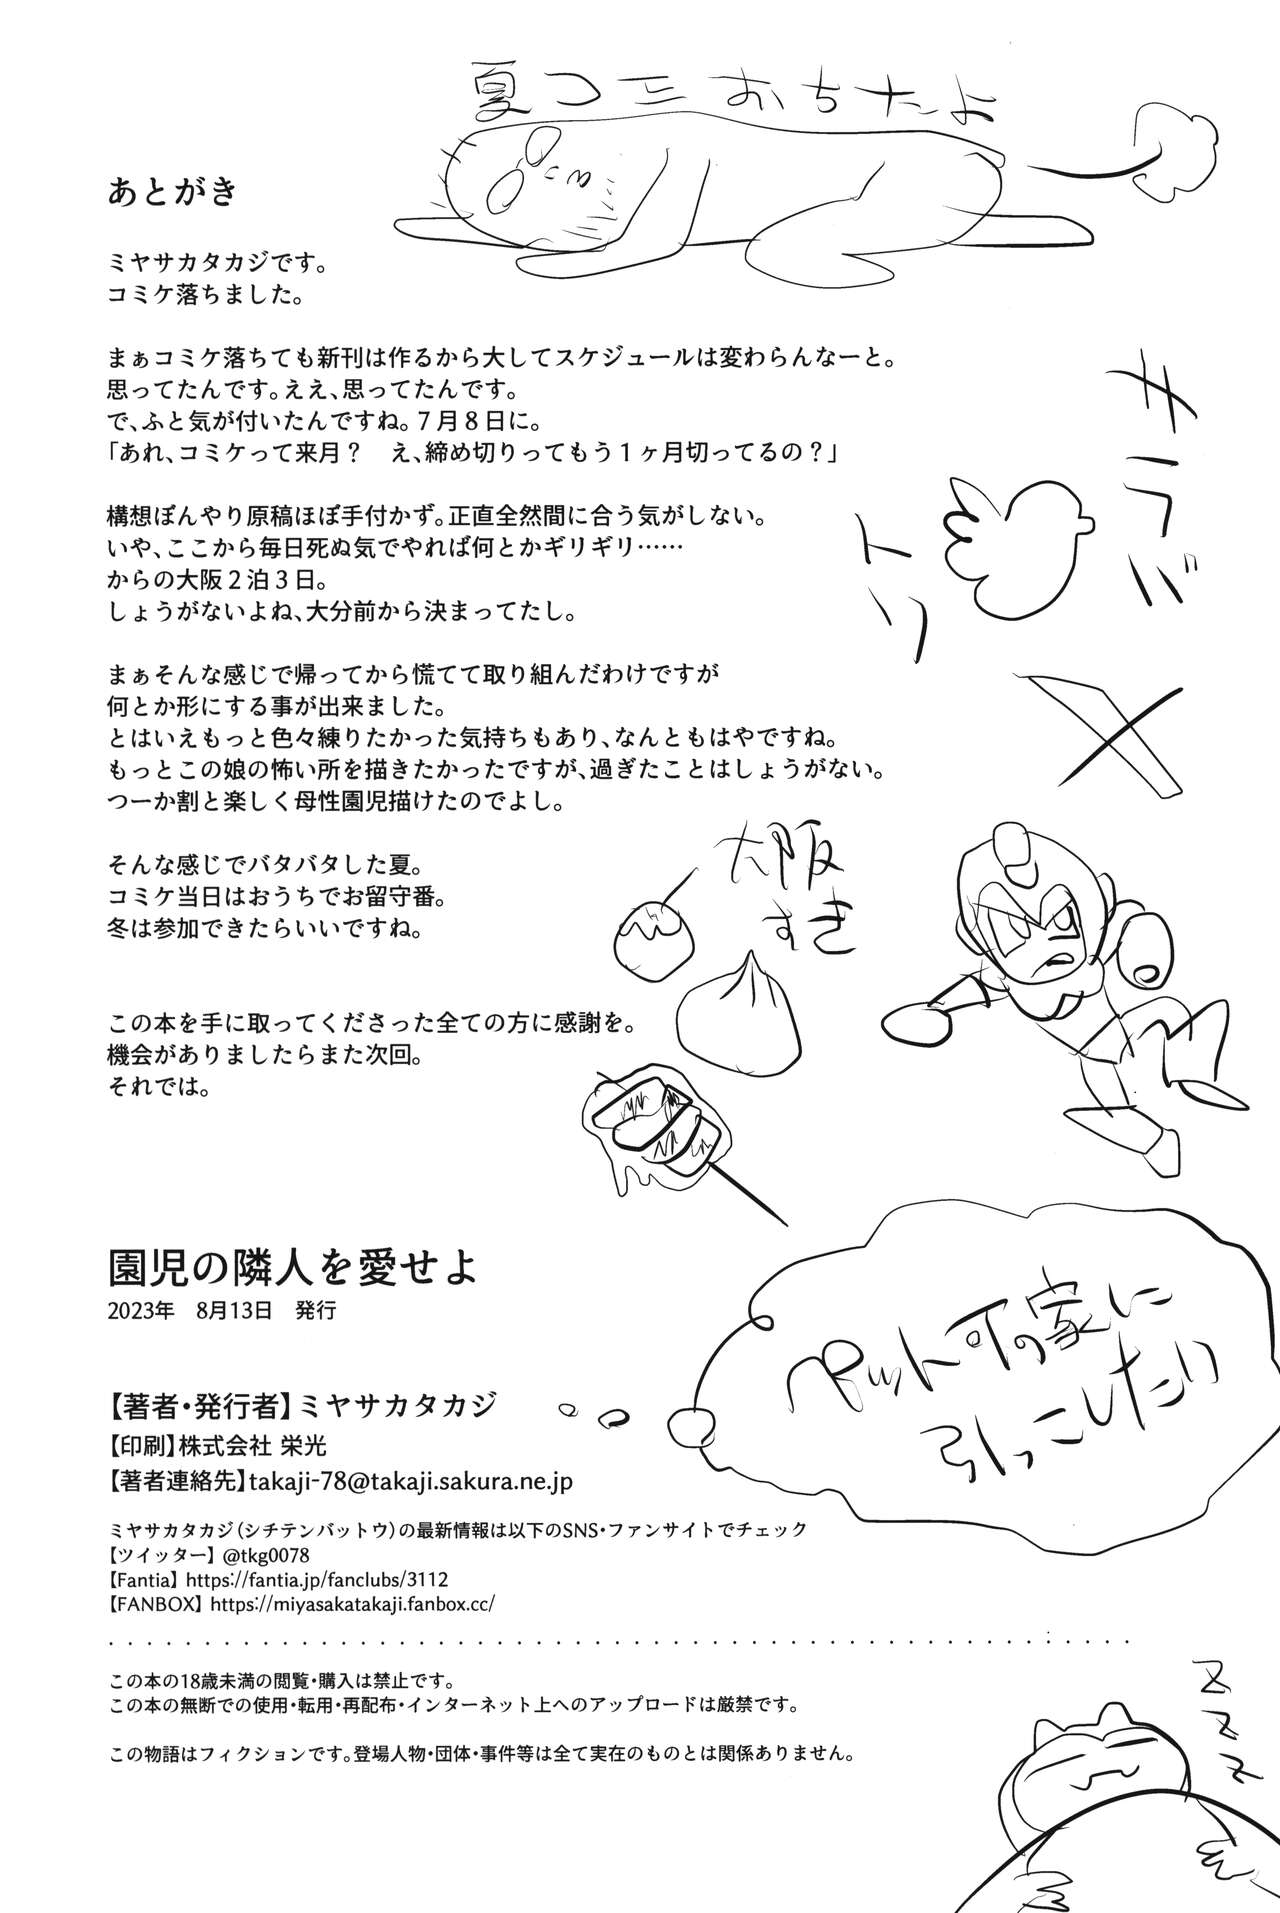 夏コミおちたよ
あとがき
ミヤサカタカジです。
コミケ落ちました。
まぁコミケ落ちても新刊は作るから大してスケジュールは変わらんなーと。
思ってたんです。ええ、思ってたんです。
で、ふと気が付いたんですね。7月8日に。
「あれ、コミケって来月？　え、締め切りってもう1ヶ月切ってるの？」
構想ぼんやり原稿ほぼ手付かず。正直全然間に合う気がしない。
いや、ここから毎日死ぬ気でやれば何とかギリギリ……
からの大阪2泊3日。
しょうがないよね、大分前から決まってたし。
まぁそんな感じで帰ってから慌てて取り組んだわけですが
何とか形にする事が出来ました。
とはいえもっと色々練りたかった気持ちもあり、なんともはやですね。
もっとこの娘の怖い所を描きたかったですが、過ぎたことはしょうがない。
つーか割と楽しく母性園児描けたのでよし。
そんな感じでバタバタした夏。
コミケ当日はおうちでお留守番。
冬は参加できたらいいですね。
この本を手に取ってくださった全ての方に感謝を。
機会がありましたらまた次回。
それでは。
サラバ
トリ
大阪
すき
ペット可の家に
引っこしたい
園児の隣人を愛せよ
2023年　8月13日　発行
【著者・発行者】ミヤサカタカジ
【印刷】株式会社 栄光
【著者連絡先】takaji-78@takaji.sakura.ne.jp
ミヤサカタカジ（シチテンバットウ）の最新情報は以下のSNS・ファンサイトでチェック
【ツイッター】 @tkg0078
【Fantia】 https://fantia.jp/fanclubs/3112
【FANBOX】 https://miyasakatakaji.fanbox.cc/
この本の18歳未満の閲覧・購入は禁止です。
この本の無断での使用・転用・再配布・インターネット上へのアップロードは厳禁です。
この物語はフィクションです。登場人物・団体・事件等は全て実在のものとは関係ありません。
ZZZZ